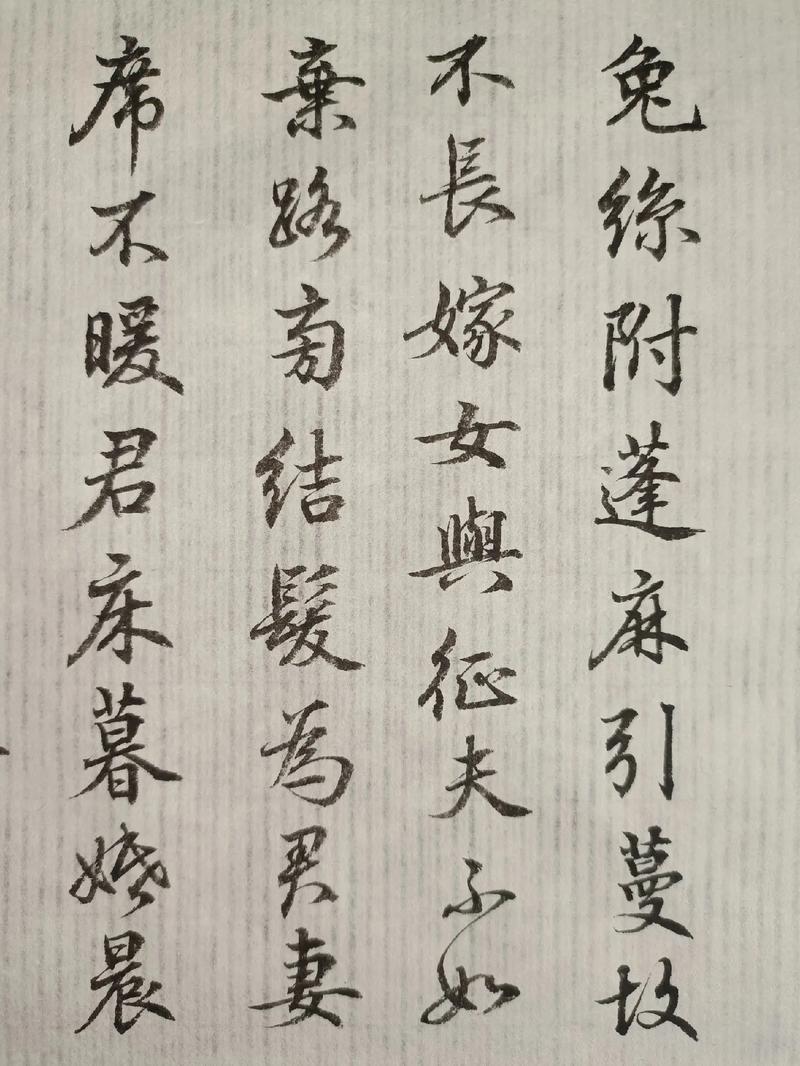 兔絲附蓬麻引蔓故
不長嫁女與征夫不如
棄路旁結髮為君妻
席不暖君床暮婚晨